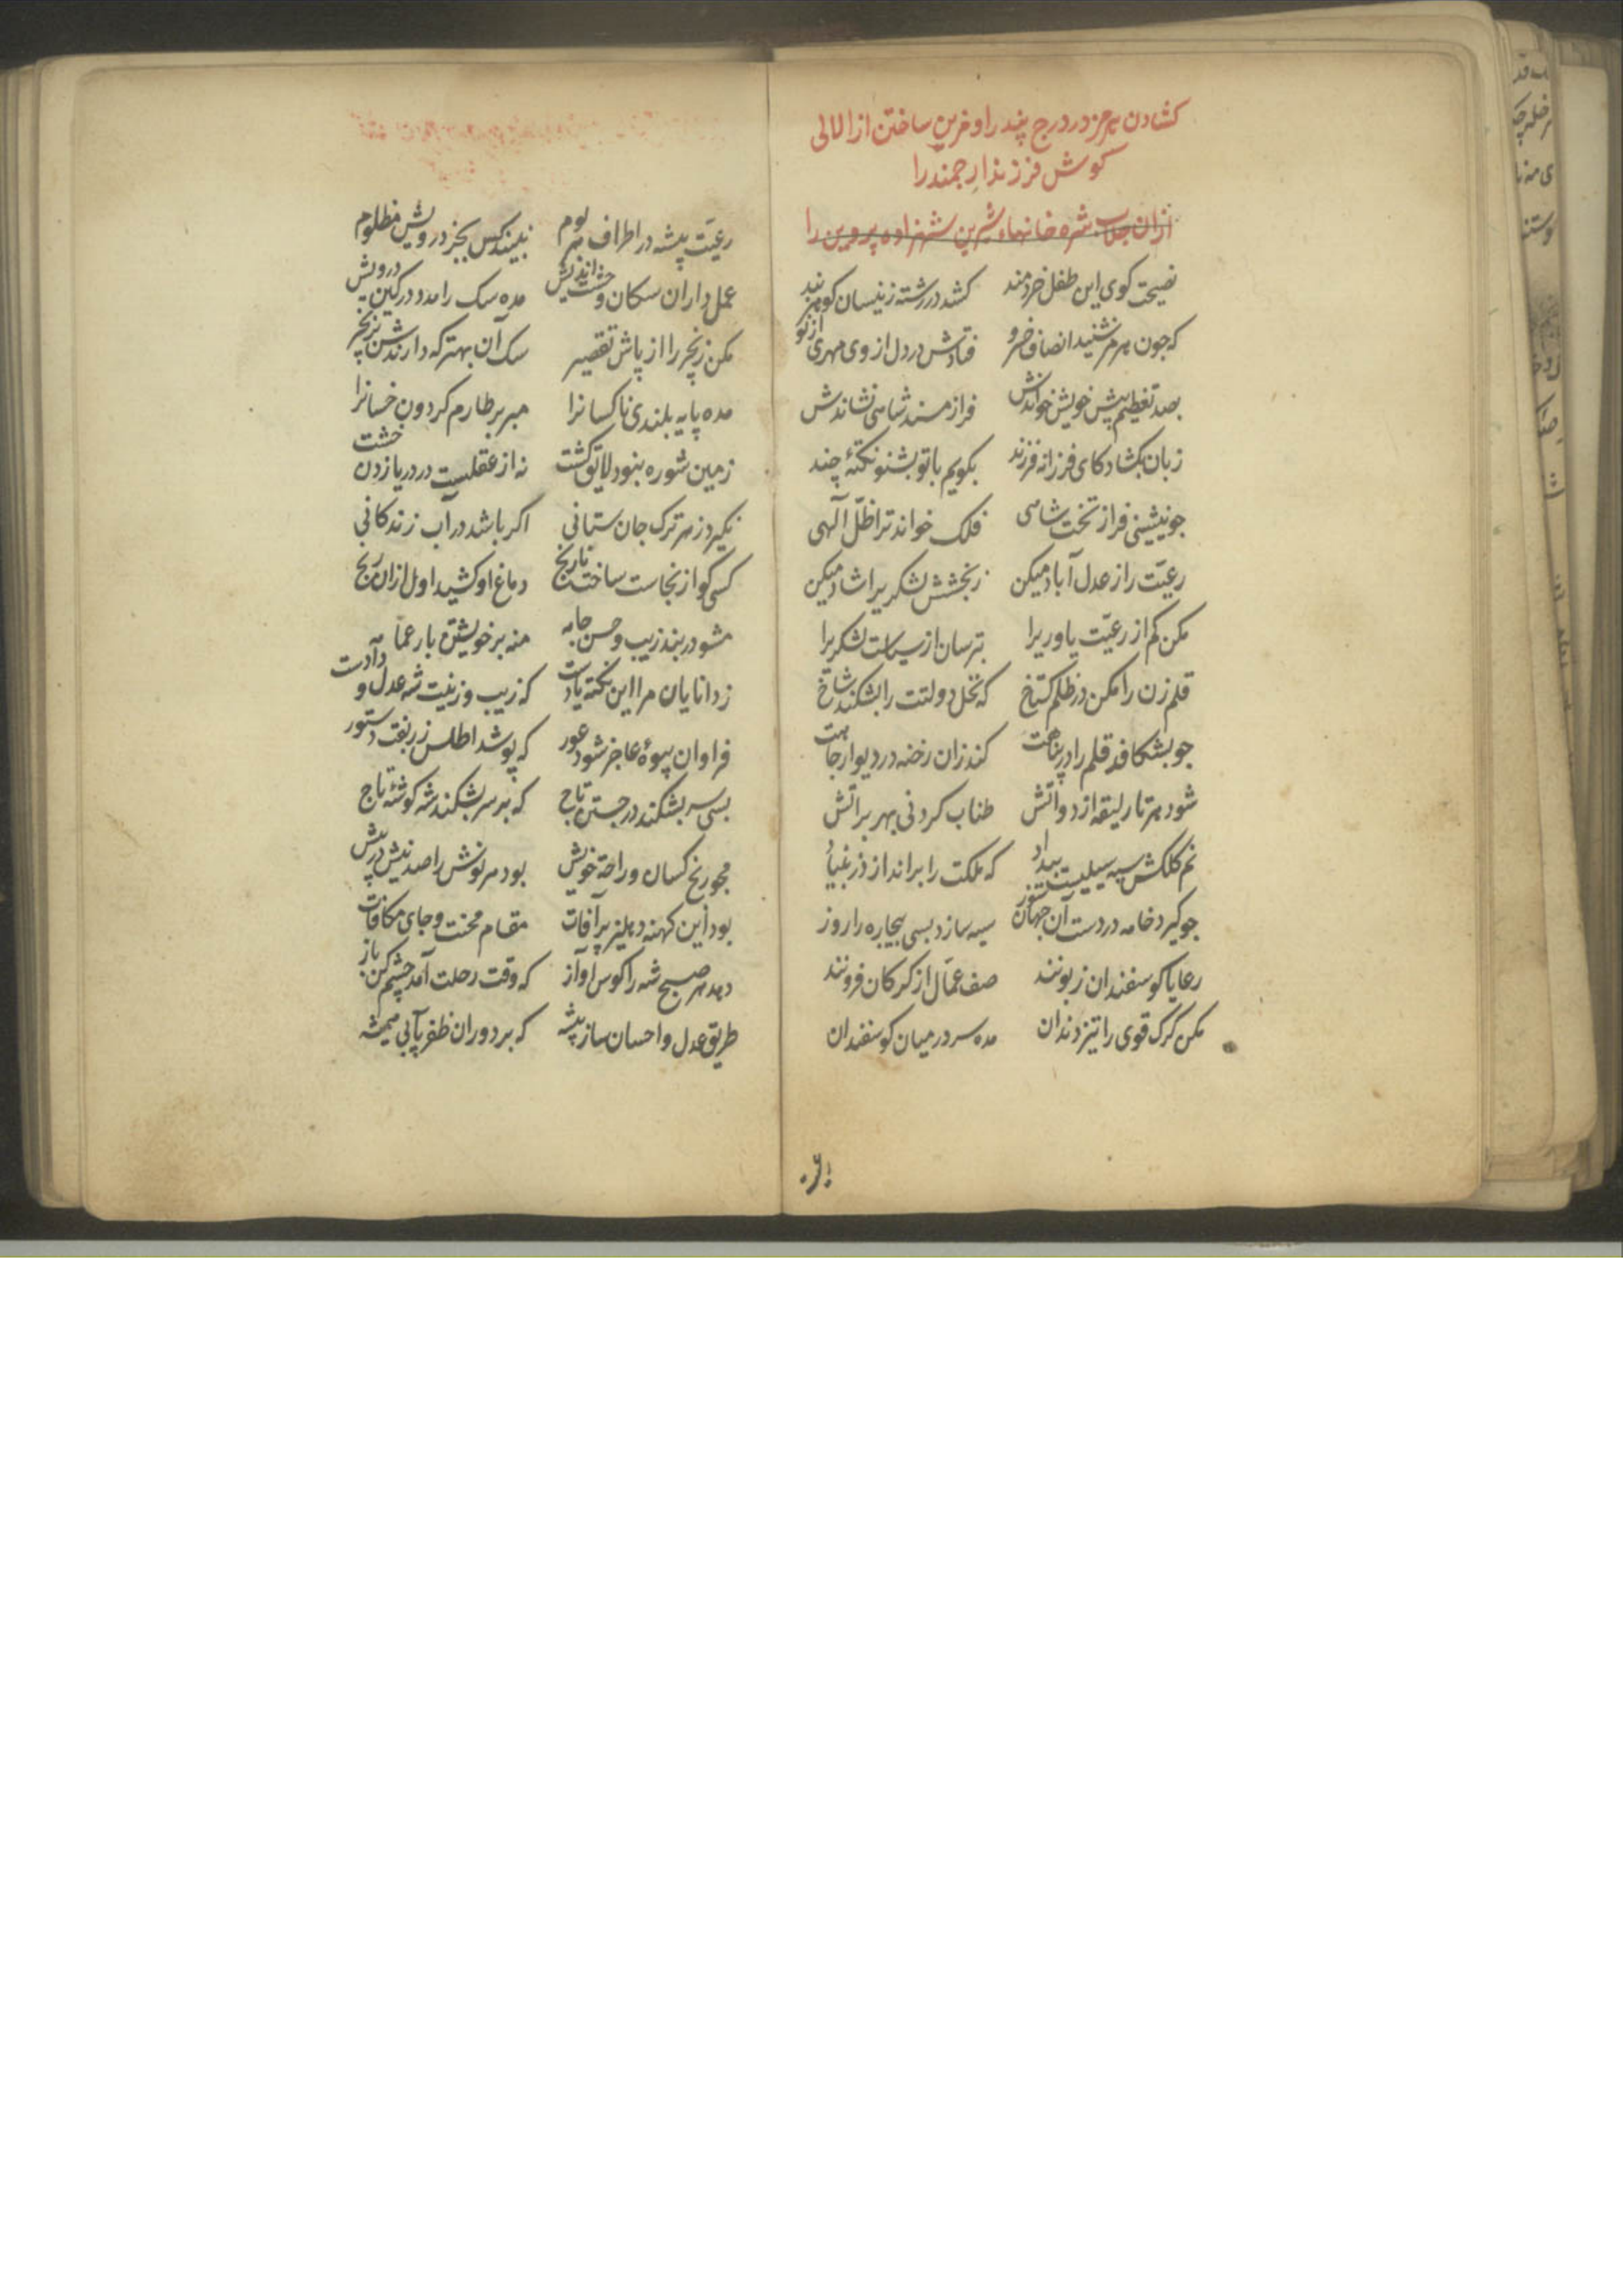 کشادن هرمز در درج پند را و مزین ساختن از لالی
کوش فرزند ارجمند را
ازان جلاب شره خانهاء شیرین شهزاده پرویز را
نصیحت کوی این طفل خردمند کشد در رشته زینسان کوهر پند
که چون هرمز شنید انصاف خسرو فتادش در دل از وی مهری از نو
بصد تعظیم پیش خویش خواندش فراز مسند شاهی نشاندش
زبان بکشاد کای فرزانه فرزند بکویم با تو بشنو نکتهٔ چند
جو نشینی فراز تخت شاهی فلک خواند ترا ظلّ آلهی
رعیّت را ز عدل آباد میکن ز بخشش لشکریرا شاد میکن
مکن کم از رعیّت یاوریرا بترسان از سیاست لشکریرا
قلم زن را مکن در ظلم کستاخ که نخل دولتت را بشکند شاخ
جو بشکافد قلم را در پناهت کند زان رخنه در دیوار جاهت
شود هر تار لیقه از دواتش طناب کردنی بهر براتش
نم کلکش سیه سیلیست بیداد که ملکت را براندازد ز بنیاد
جو کیرد خامه در دست آن جهان سوز سیه سازد بسی بیجاره را روز
رعایا کوسفندان زبونند صف عمّال از کرکان فزونند
مکن کرک قوی را تیز دندان مده سر در میان کوسفندان
رعیّت پیشه در اطراف هر بوم نبیند کس بجز درویش مظلوم
عمل داران سکان وحشت اندیش مده سک را مدد در کین درویش
مکن زنجیر را از پاش تقصیر سک آن بهتر که دارندش بزنجیر
مده پایه بلندی ناکسانرا مبر بر طارم کردون خسانرا
زمین شوره نبود لایق کشت نه از عقلست در دریا زدن خشت
نکیرد زهر ترک جان ستانی اکر باشد در آب زندکانی
کسی کو از نجاست ساخت نارنج دماغ او کشید اول ازان رنج
مشو در بند زیب و حسن جامه منه بر خویشتن بار عمامه
ز دانایان مرا این نکته یادست که زیب و زینت شه عدل و دادست
فراوان بیوهٔ عاجز شود عور که پوشد اطلس زربفت دستور
بسی سر بشکند در جستن تاج که بر سر بشکند شه کوشهٔ تاج
مجو رنج کسان و راحة خویش بود هر نوش را صد نیش در پیش
بود این کهنه دهلیز پر آفات مقام محنت و جای مکافات
دهد هر صبح شه را کوس آواز که وقت رحلت آمد چشم کن باز
طریق عدل و احسان ساز پیشه که بر دوران ظفر یابی همیشه